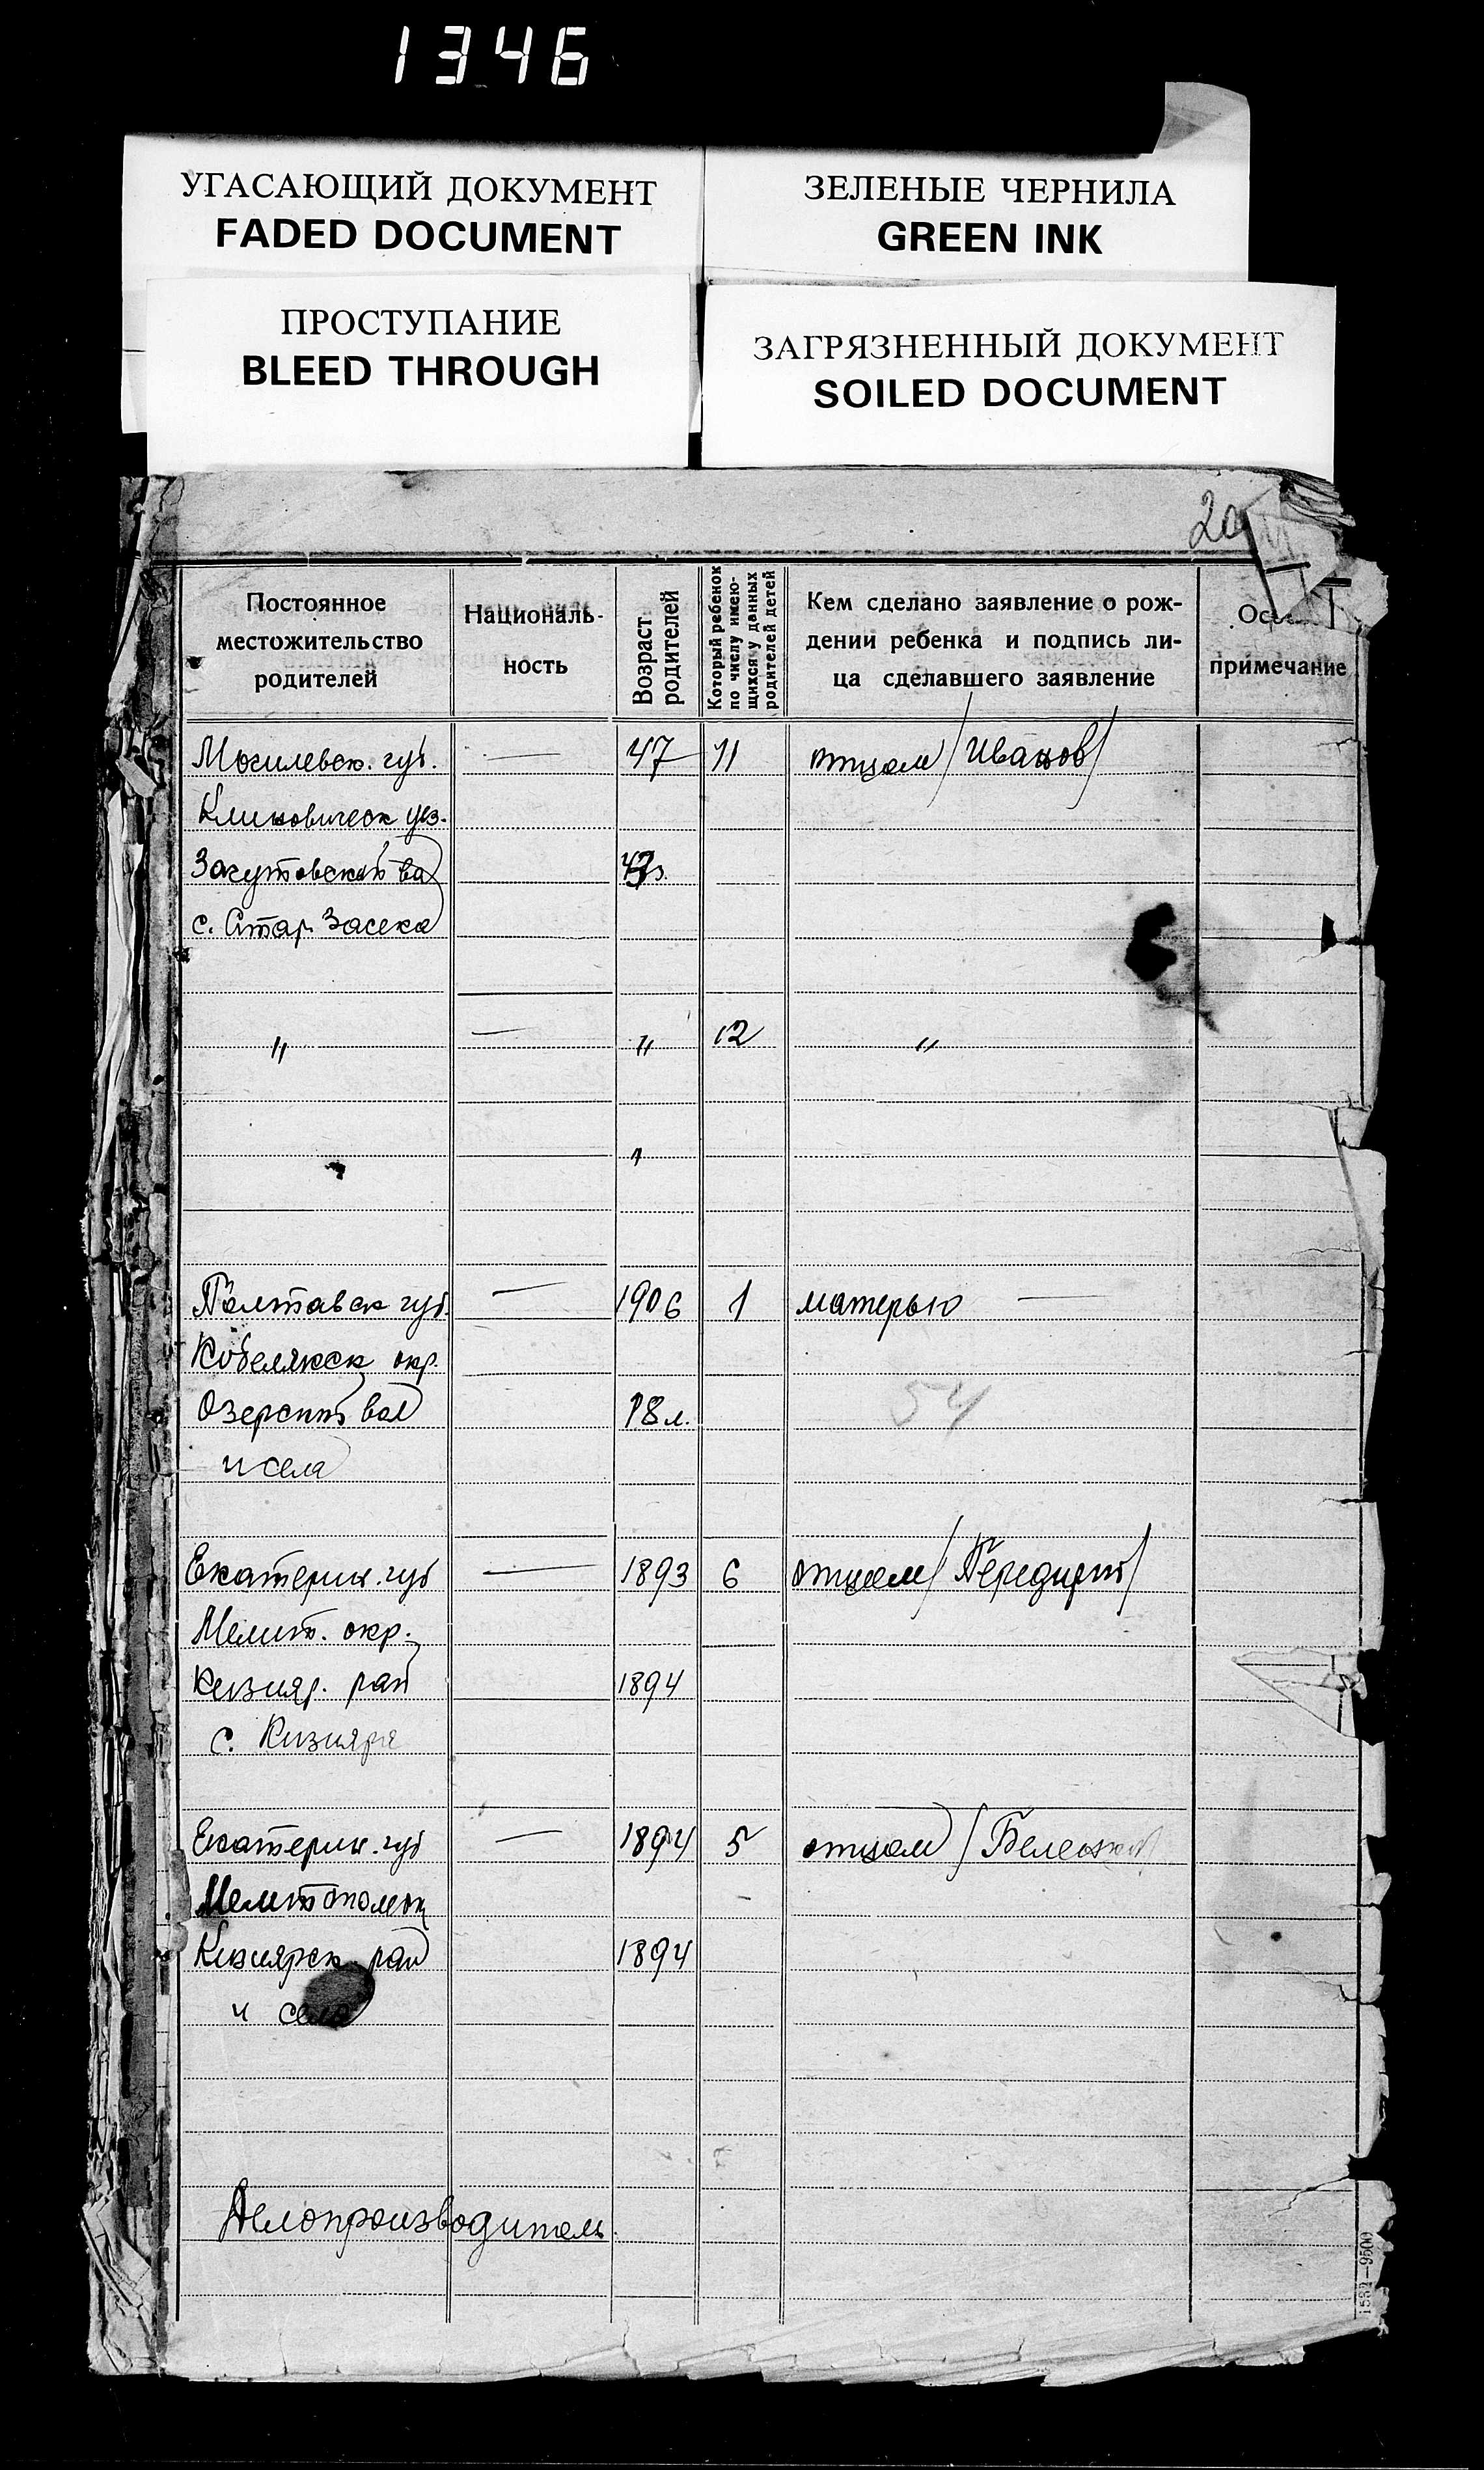 1346
УГАСАЮЩИЙ ДОКУМЕНТ
FADED DOCUMENT
ЗЕЛЕНЫЕ ЧЕРНИЛА
GREEN INK
ПРОСТУПАНИЕ
BLEED THROUGH
ЗАГРЯЗНЕННЫЙ ДОКУМЕНТ
SOILED DOCUMENT
Постоянное
местожительство
родителей
Националь-
ность
Возраст
родителей
Который ребенок
по числу имею-
щихся у данных
родителей детей
Кем сделано заявление о рож-
дении ребенка и подпись ли-
ца сделавшего заявление
примечание
Могилевск. губ. — 47 11 отцом /Иванов/
Климовическ уез.
с. Стар.
" — " 12 "
"
Полтавск губ. — 1906 1 матерью —
Кобелякск окр.
вол 18 л.
54
и села
Екатерин. губ — 1893 6 отцом
Мелит. окр.
Кизияр. рай 1894
с. Кизияре
Екатерин. губ — 1894 5 отцом
Кизиярск рай 1894
и села
Делопроизводитель.
1532—9500